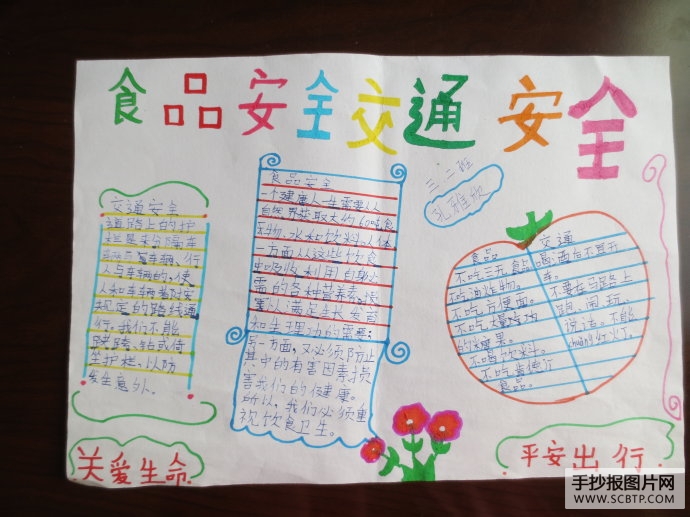 食品安全交通安全
三.二班
交通安全
道路上的护
栏是来分隔车
人与车辆的,使
人和车辆都好安
规定的路线通
行。我们不能
跨跨、钻或倚
坐护栏、以防
发生意外。
食品安全
一个健康人一生需要从
自然界摄取大约60吨食
料物、水和饮料。人体
一方面从这些饮食
中吸收利用自身必
需的各种营养素,按
赛以满足生长发育
和生理功的需要;
另一方面,又必须防止
其中的有害因素损
害我们的健康。
所以,我们必须重
视饮食卫生。
食品
不吃三无食品。
不吃油炸物。
不吃方便面。
不吃
的
不喝饮料。
不吃肯德
食品。
交通
喝酒后不可开
车。
不要在马路上
跑、闹、玩、
说话。不能
chuǎng红灯。
关爱生命
平安出行
手抄报图片网
WWW.SCBTP.COM